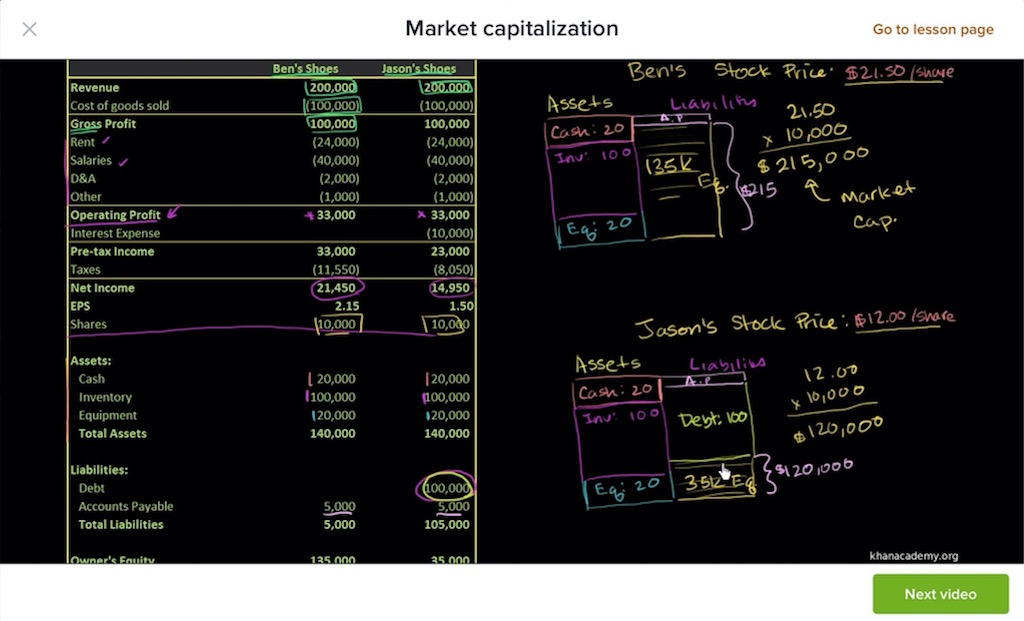 Market capitalization
Go to lesson page
Ben's Shoes Jason's Shoes
Revenue 200,000 200,000
Cost of goods sold (100,000) (100,000)
Gross Profit 100,000 100,000
Rent (24,000) (24,000)
Salaries (40,000) (40,000)
D&A (2,000) (2,000)
Other (1,000) (1,000)
Operating Profit 33,000 33,000
Interest Expense (10,000)
Pre-tax Income 33,000 23,000
Taxes (11,550) (8,050)
Net Income 21,450 14,950
EPS 2.15 1.50
Shares 10,000 10,000
Assets:
Cash 20,000 20,000
Inventory 100,000 100,000
Equipment 20,000 20,000
Total Assets 140,000 140,000
Liabilities:
Debt 100,000
Accounts Payable 5,000 5,000
Total Liabilities 5,000 105,000
Owner's Equity 135,000 35,000
Ben's Stock Price: $21.50/share
Assets Liabilities
A.P
Cash: 20
Inv: 100
135K
Eq.
Eq: 20
$215
21.50
x 10,000
$215,000
Market
Cap.
Jason's Stock Price: $12.00/share
Assets Liabilities
A.P
Cash: 20
Inv: 100
Debt: 100
Eq: 20
35K Eq
$120,000
12.00
x 10,000
$120,000
khanacademy.org
Next video